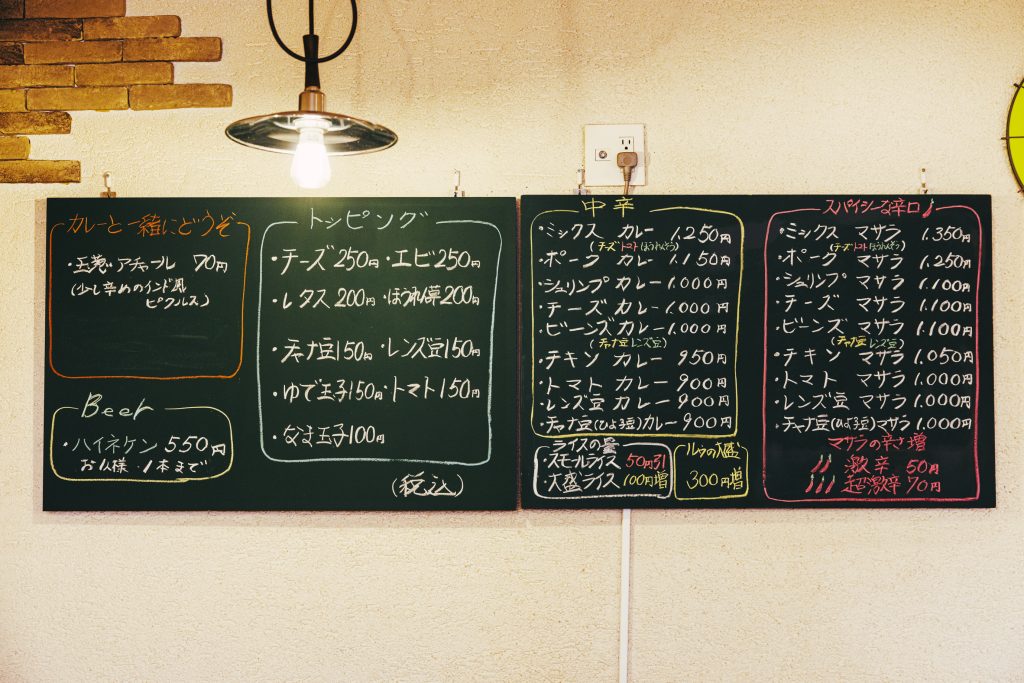 カレーと一緒にどうぞ
・玉葱アチャール 70円
(少し辛めのインド風
ピクルス)
Beer
・ハイネケン 550円
お1人様・1本まで
トッピング
・チーズ250円・エビ250円
・レタス200円・ほうれん草200円
・チャナ豆150円・レンズ豆150円
・ゆで玉子150円・トマト150円
・なま玉子100円
(税込)
中辛
・ミックス カレー 1.250円
(チーズ トマト ほうれんそう)
・ポーク カレー 1.150円
・シュリンプ カレー 1.000円
・チーズ カレー 1.000円
・ビーンズ カレー 1.000円
(チャナ豆 レンズ豆)
・チキン カレー 950円
・トマト カレー 900円
・レンズ豆 カレー 900円
・チャナ豆(ひよこ豆)カレー 900円
ライスの量
・スモールライス 50円引
・大盛ライス 100円増
ルウの大盛
300円増
スパイシーな辛口
・ミックス マサラ 1.350円
(チーズ トマト ほうれんそう)
・ポーク マサラ 1.250円
・シュリンプ マサラ 1.100円
・チーズ マサラ 1.100円
・ビーンズ マサラ 1.100円
(チャナ豆 レンズ豆)
・チキン マサラ 1.050円
・トマト マサラ 1.000円
・レンズ豆 マサラ 1.000円
・チャナ豆(ひよこ豆)マサラ 1.000円
マサラの辛さ増
激辛 50円
超激辛 70円